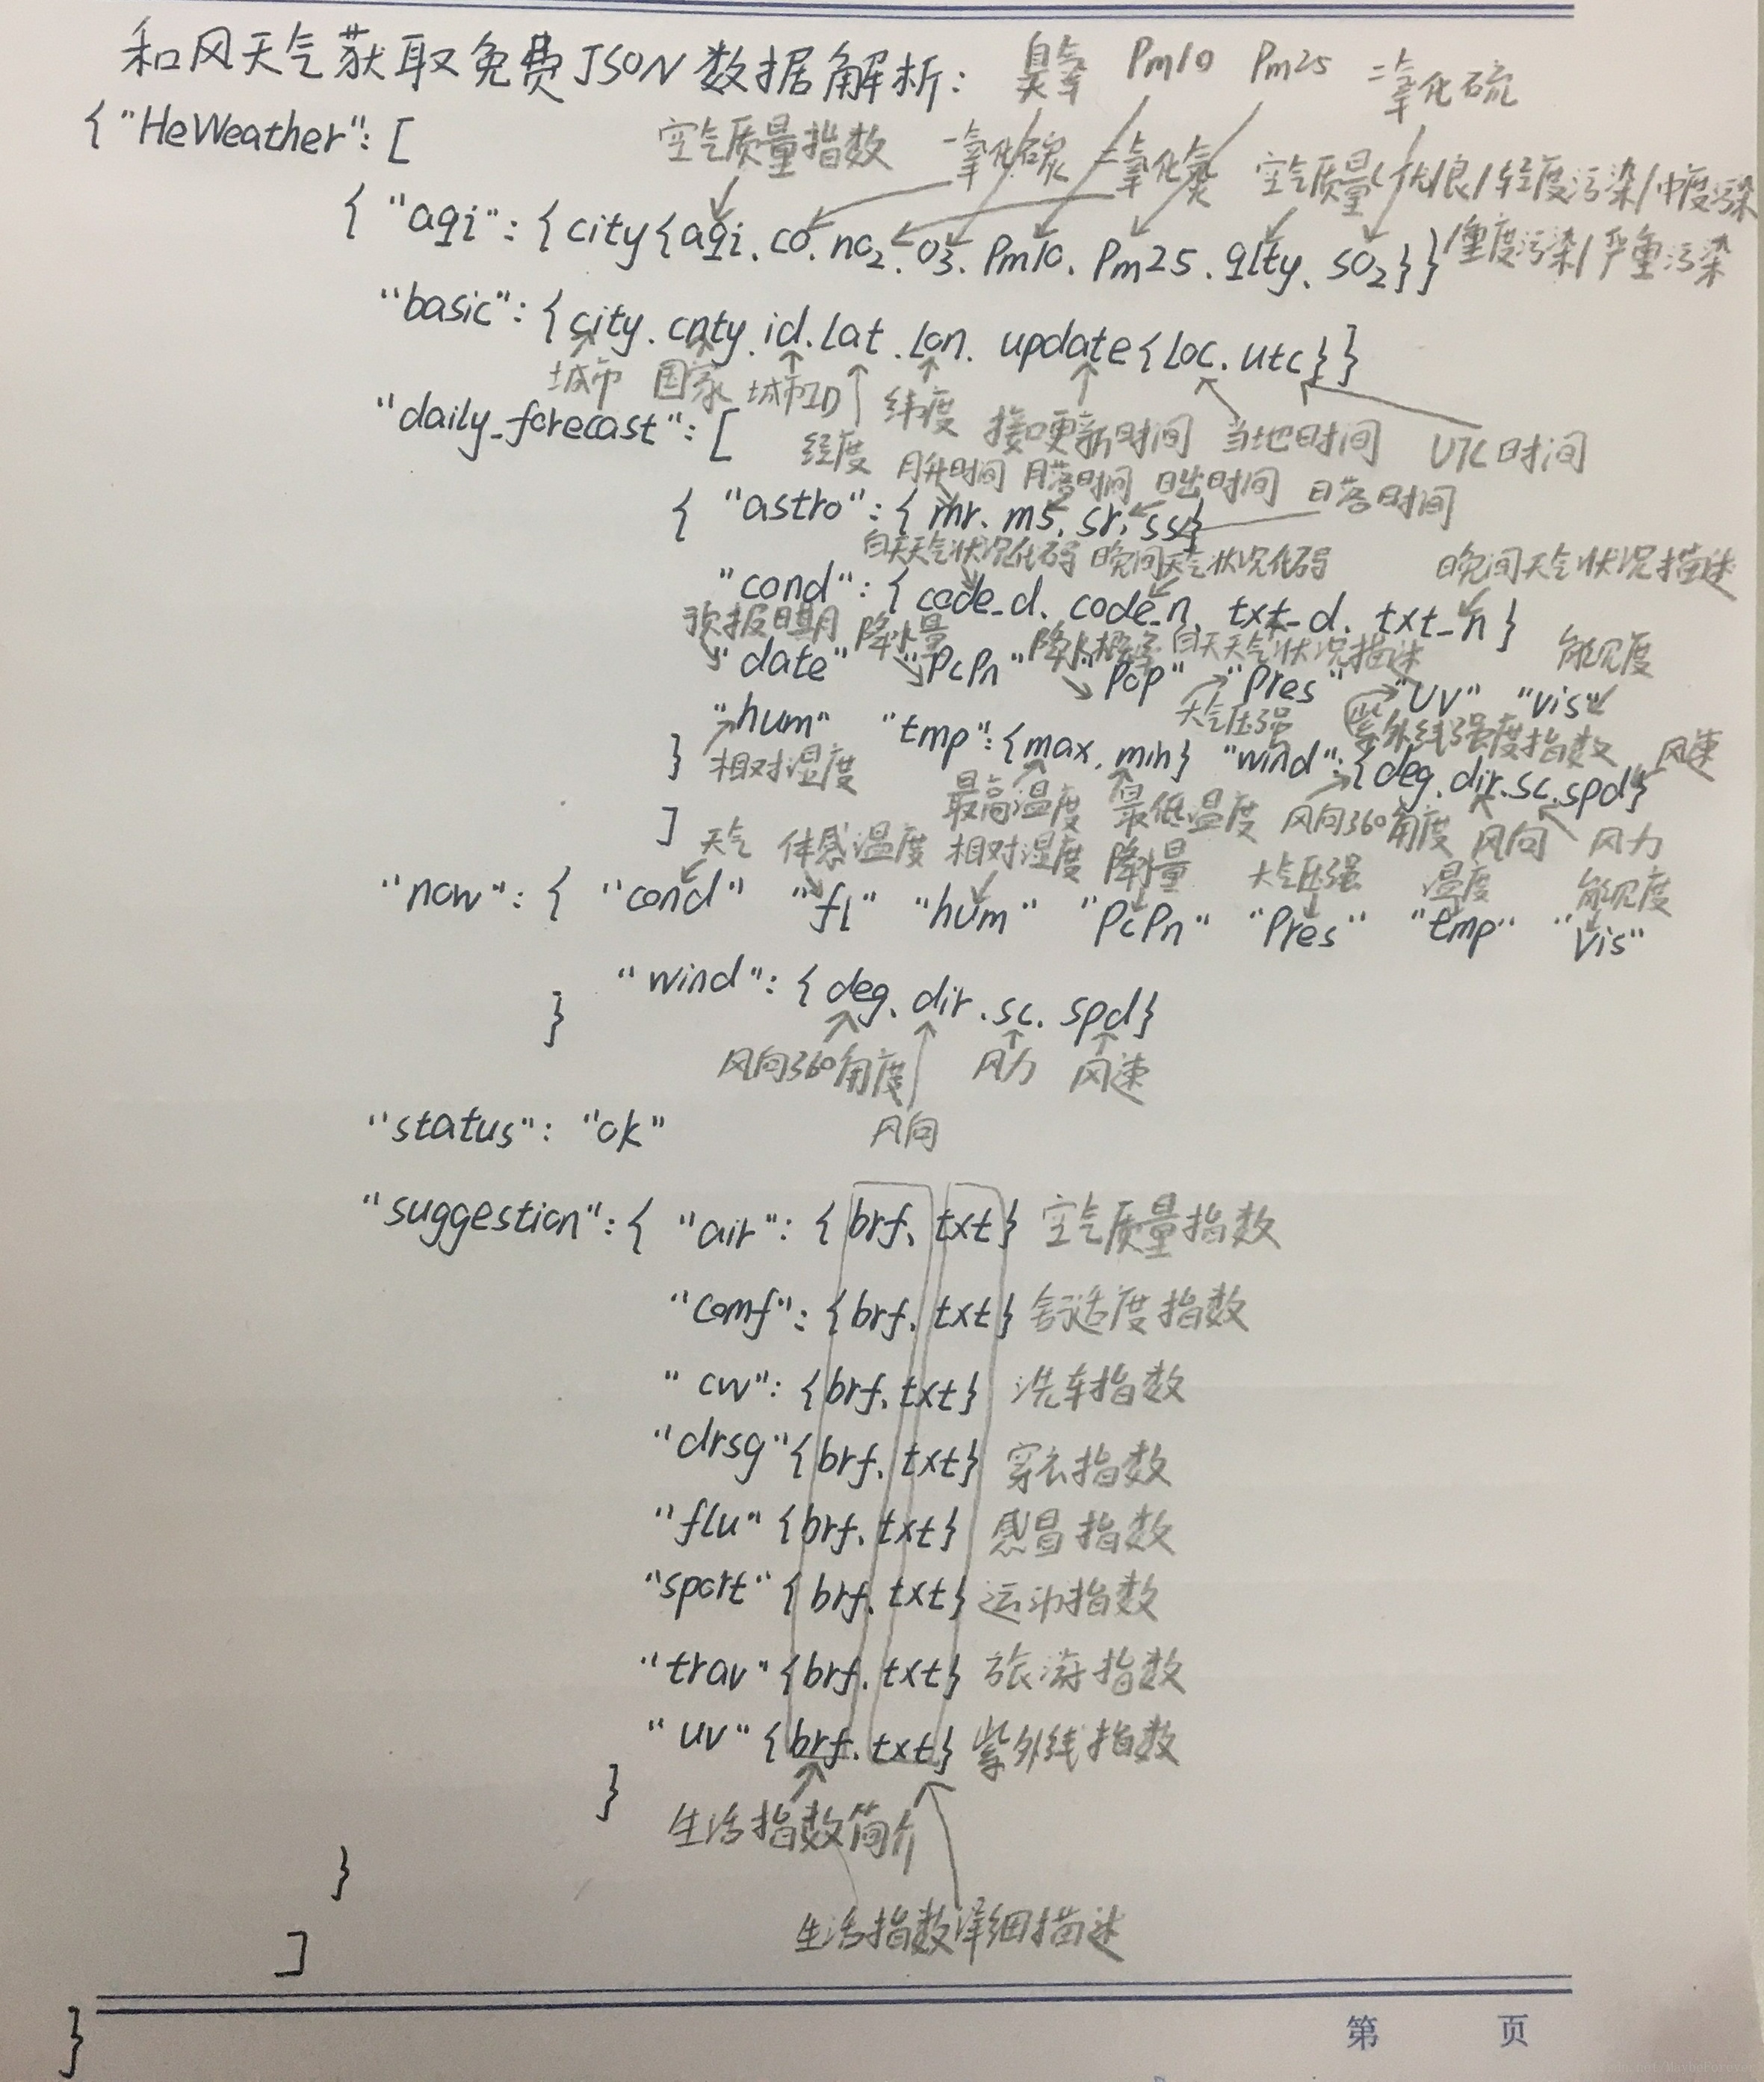 和风天气获取免费JSON数据解析: 臭氧 Pm10 Pm25 二氧化硫
{"HeWeather": [
空气质量指数 一氧化碳 二氧化氮 空气质量(优/良/轻度污染/中度污染
{ "aqi": {city{aqi.co.no2.o3.Pm10.Pm25.qlty.so2}} /重度污染/严重污染
"basic": {city.cnty.id.lat.lon.update{loc.utc}}
城市 国家 城市ID 纬度
"daily_forecast": [ 经度 接口更新时间 当地时间 UTC时间
月升时间 月落时间 日出时间 日落时间
{ "astro": {mr.ms.sr.ss}
白天天气状况代码 晚间天气状况代码 晚间天气状况描述
"cond": {code_d.code_n.txt_d.txt_n}
预报日期 降水量 降水概率 白天天气状况描述 能见度
"date" "PcPn" "Pop" "Pres" "UV" "vis"
大气压强 紫外线强度指数
"hum" "tmp": {max.min} "wind": {deg.dir.sc.spd} 风速
} 相对湿度 最高温度 最低温度 风向360角度 风向 风力
]
天气 体感温度 相对湿度 降水量 大气压强 温度 能见度
"now": { "cond" "fl" "hum" "PcPn" "Pres" "tmp" "Vis"
"wind": {deg.dir.sc.spd}
}
风向360角度 风力 风速
风向
"status": "ok"
"suggestion": { "air": {brf.txt} 空气质量指数
"comf": {brf.txt} 舒适度指数
"cw": {brf.txt} 洗车指数
"drsg"{brf.txt} 穿衣指数
"flu" {brf.txt} 感冒指数
"sport" {brf.txt} 运动指数
"trav" {brf.txt} 旅游指数
"uv" {brf.txt} 紫外线指数
}
生活指数简介
}
生活指数详细描述
]
}
第 页